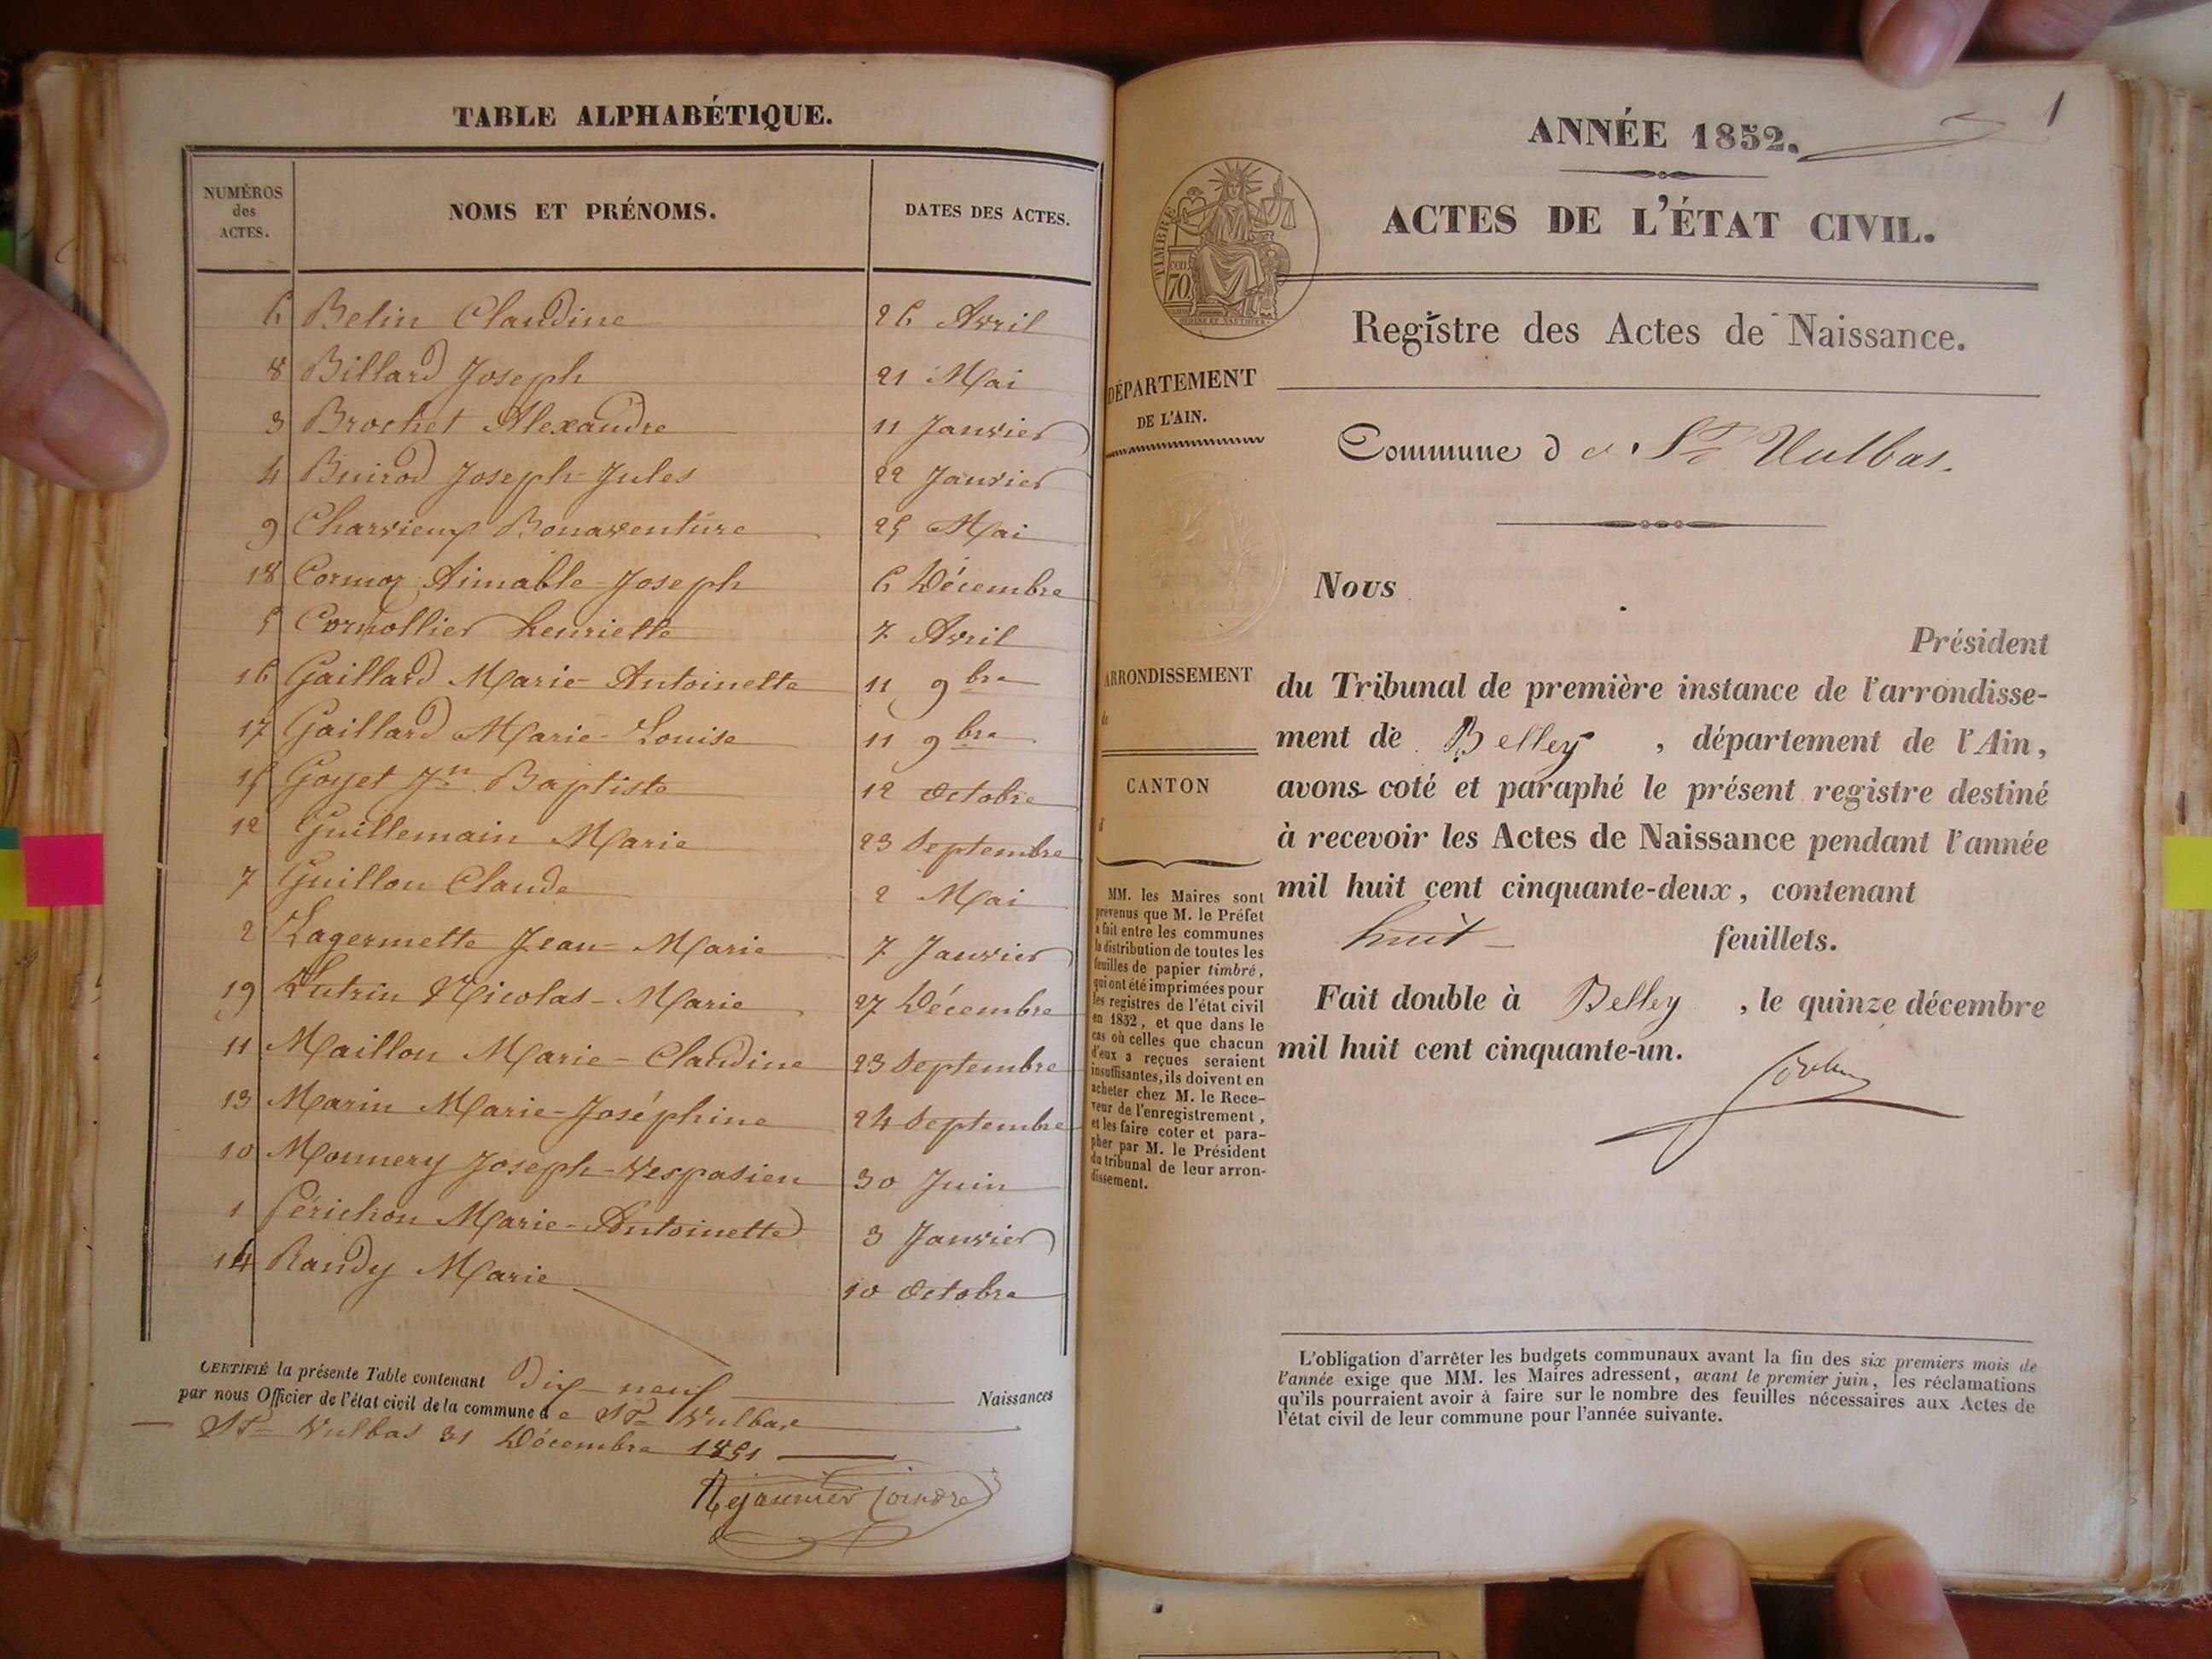 TABLE ALPHABÉTIQUE.
NUMÉROS
des
ACTES.
NOMS ET PRÉNOMS.
DATES DES ACTES.
6 Belin Claudine 26 Avril
8 Billard Joseph 21 Mai
3 Brochet Alexandre 11 Janvier
4 Buirod Joseph-Jules 22 Janvier
9 Charvieux Bonaventure 25 Mai
18 Cormoz Aimable-Joseph 6 Décembre
5 Cornollier henriette 7 Avril
16 Gaillard Marie-Antoinette 11 9bre
17 Gaillard Marie-Louise 11 9bre
15 Goyet Jn Baptiste 12 Octobre
12 Guillemain Marie 23 Septembre
7 Guillon Claude 2 Mai
2 Lagermette Jean-Marie 7 Janvier
19 Lutrin Nicolas-Marie 27 Décembre
11 Maillon Marie-Claudine 23 Septembre
13 Marin Marie-Joséphine 24 Septembre
10 Monnery Joseph-Vespasien 30 Juin
1 Périchon Marie-Antoinette 3 Janvier
14 Randy Marie 10 Octobre
CERTIFIÉ la présente Table contenant Dix-neuf Naissances
par nous Officier de l'état civil de la commune de St Vulbas
St Vulbas 31 Décembre 1851
1
ANNÉE 1852.
ACTES DE L'ÉTAT CIVIL.
TIMBRE
70
Registre des Actes de Naissance.
DÉPARTEMENT
DE L'AIN.
Commune de St Vulbas.
Nous
Président
ARRONDISSEMENT
de
du Tribunal de première instance de l'arrondisse-
ment de Belley, département de l'Ain,
CANTON
d
avons coté et paraphé le présent registre destiné
à recevoir les Actes de Naissance pendant l'année
mil huit cent cinquante-deux, contenant
huit feuillets.
Fait double à Belley, le quinze décembre
mil huit cent cinquante-un.
MM. les Maires sont
prévenus que M. le Préfet
a fait entre les communes
la distribution de toutes les
feuilles de papier timbré,
qui ont été imprimées pour
les registres de l'état civil
en 1852, et que dans le
cas où celles que chacun
d'eux a reçues seraient
insuffisantes, ils doivent en
acheter chez M. le Rece-
veur de l'enregistrement,
et les faire coter et para-
pher par M. le Président
du tribunal de leur arron-
dissement.
L'obligation d'arrêter les budgets communaux avant la fin des six premiers mois de
l'année exige que MM. les Maires adressent, avant le premier juin, les réclamations
qu'ils pourraient avoir à faire sur le nombre des feuilles nécessaires aux Actes de
l'état civil de leur commune pour l'année suivante.